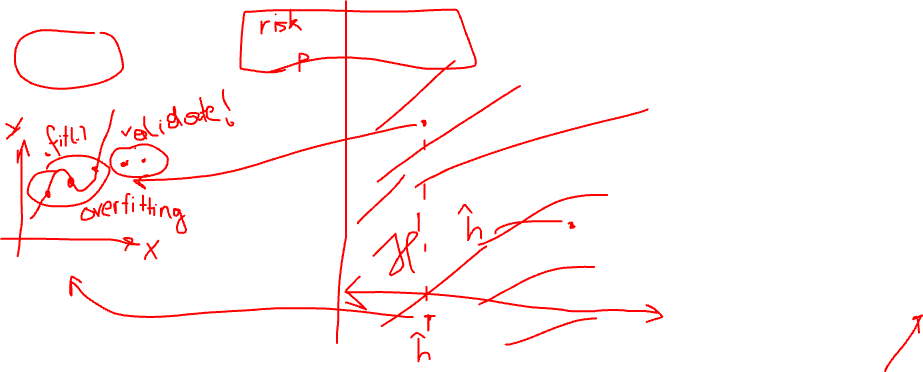 risk
P
y
.fit(.)
validate!
overfitting
x
H
ĥ
ĥ